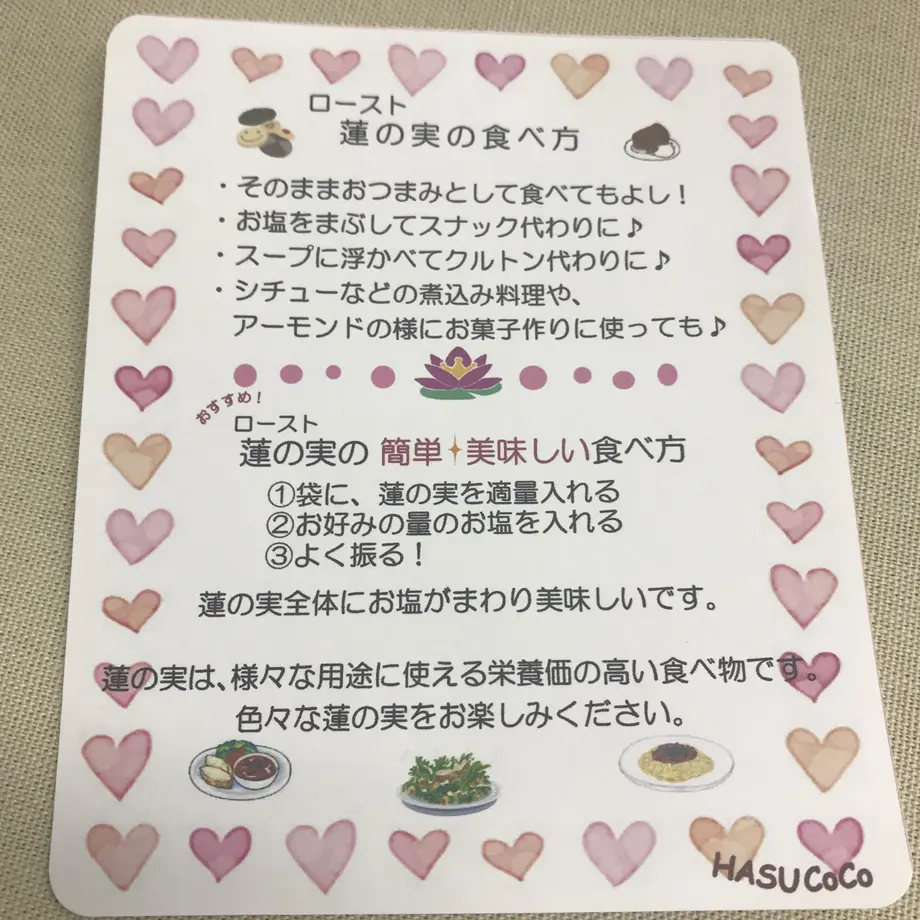 ロースト
蓮の実の食べ方
・そのままおつまみとして食べてもよし！
・お塩をまぶしてスナック代わりに♪
・スープに浮かべてクルトン代わりに♪
・シチューなどの煮込み料理や、
アーモンドの様にお菓子作りに使っても♪
おすすめ！
ロースト
蓮の実の 簡単✦美味しい食べ方
①袋に、蓮の実を適量入れる
②お好みの量のお塩を入れる
③よく振る！
蓮の実全体にお塩がまわり美味しいです。
蓮の実は、様々な用途に使える栄養価の高い食べ物です。
色々な蓮の実をお楽しみください。
HASUCoCo